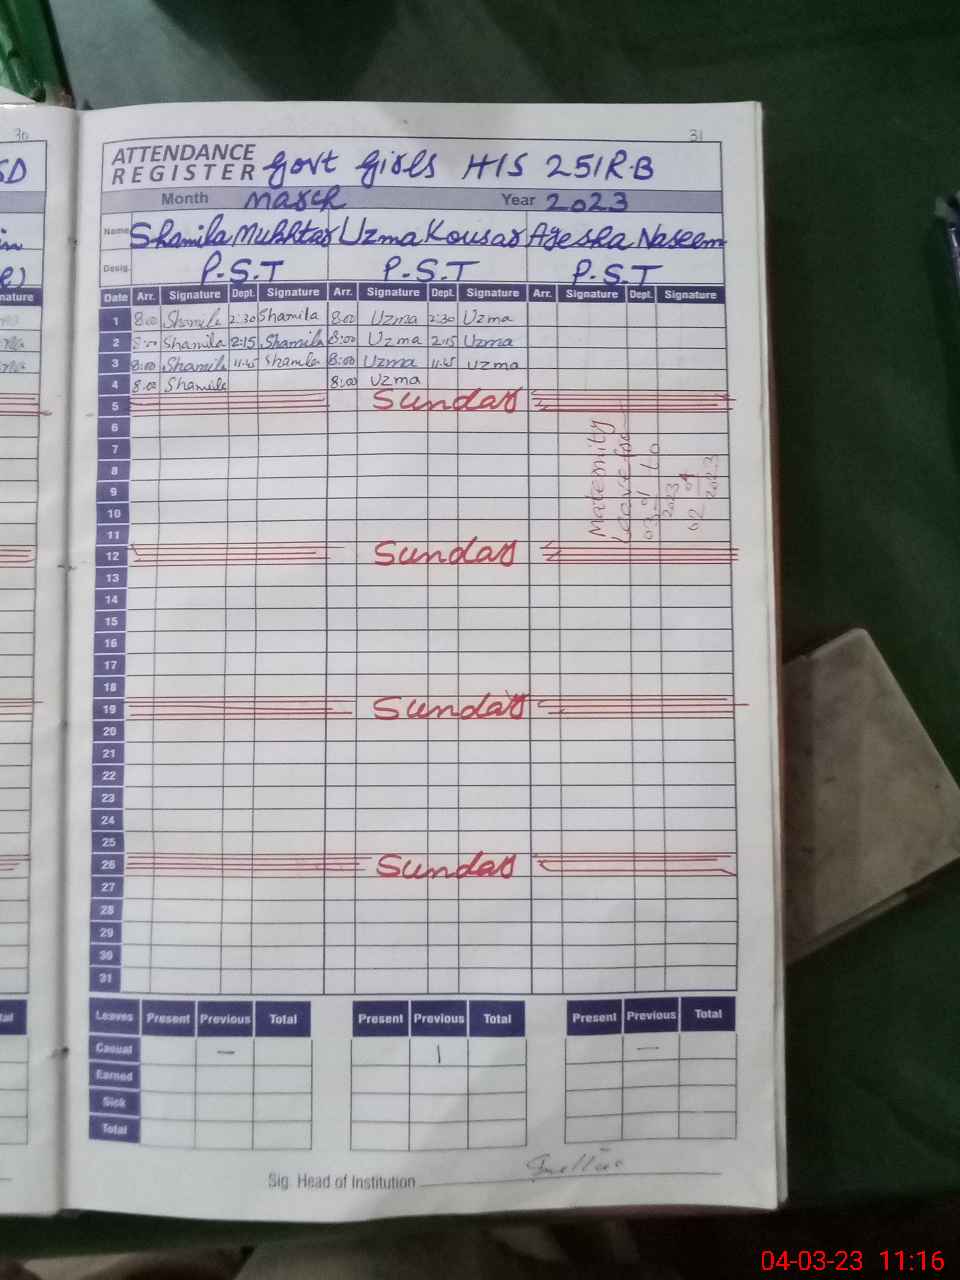 30
31
SD
ATTENDANCE
REGISTER Govt Girls H/S 251R.B
Month March Year 2023
Name Shamila Mukhtar Uzma Kousar Ayesha Naseem
Desig. P.S.T P.S.T P.S.T
nature
Date Arr. Signature Dept. Signature Arr. Signature Dept. Signature Arr. Signature Dept. Signature
1 8:00 Shamila 2:30 Shamila 8:00 Uzma 2:30 Uzma
2 8:00 Shamila 2:15 Shamila 8:00 Uzma 2:15 Uzma
3 8:00 Shamila 11:45 Shamila 8:00 Uzma 11:45 Uzma
4 8:00 Shamila 8:00 Uzma
5 Sunday
6
7
8
9
10
11
Maternity
Leave for
03 01 2023 to
02 04 2023
12 Sunday
13
14
15
16
17
18
19 Sunday
20
21
22
23
24
25
26 Sunday
27
28
29
30
31
tal
Leaves Present Previous Total Present Previous Total Present Previous Total
Casual – | –
Earned
Sick
Total
Sig. Head of Institution
04-03-23 11:16